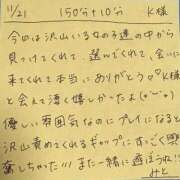 11/21 150分+10分 K様
今回は沢山いる女の子達の中から
見つけてくれて、選んでくれて、会いに
来てくれて本当にありがとう♡K様
と会えて凄く嬉しかったよ(o^^o)
優しい雰囲気なのにプレイになると
沢山責めてくれるギャップにすっごく興
奮しちゃった!!!また一緒に遊ぼうね!!
みと